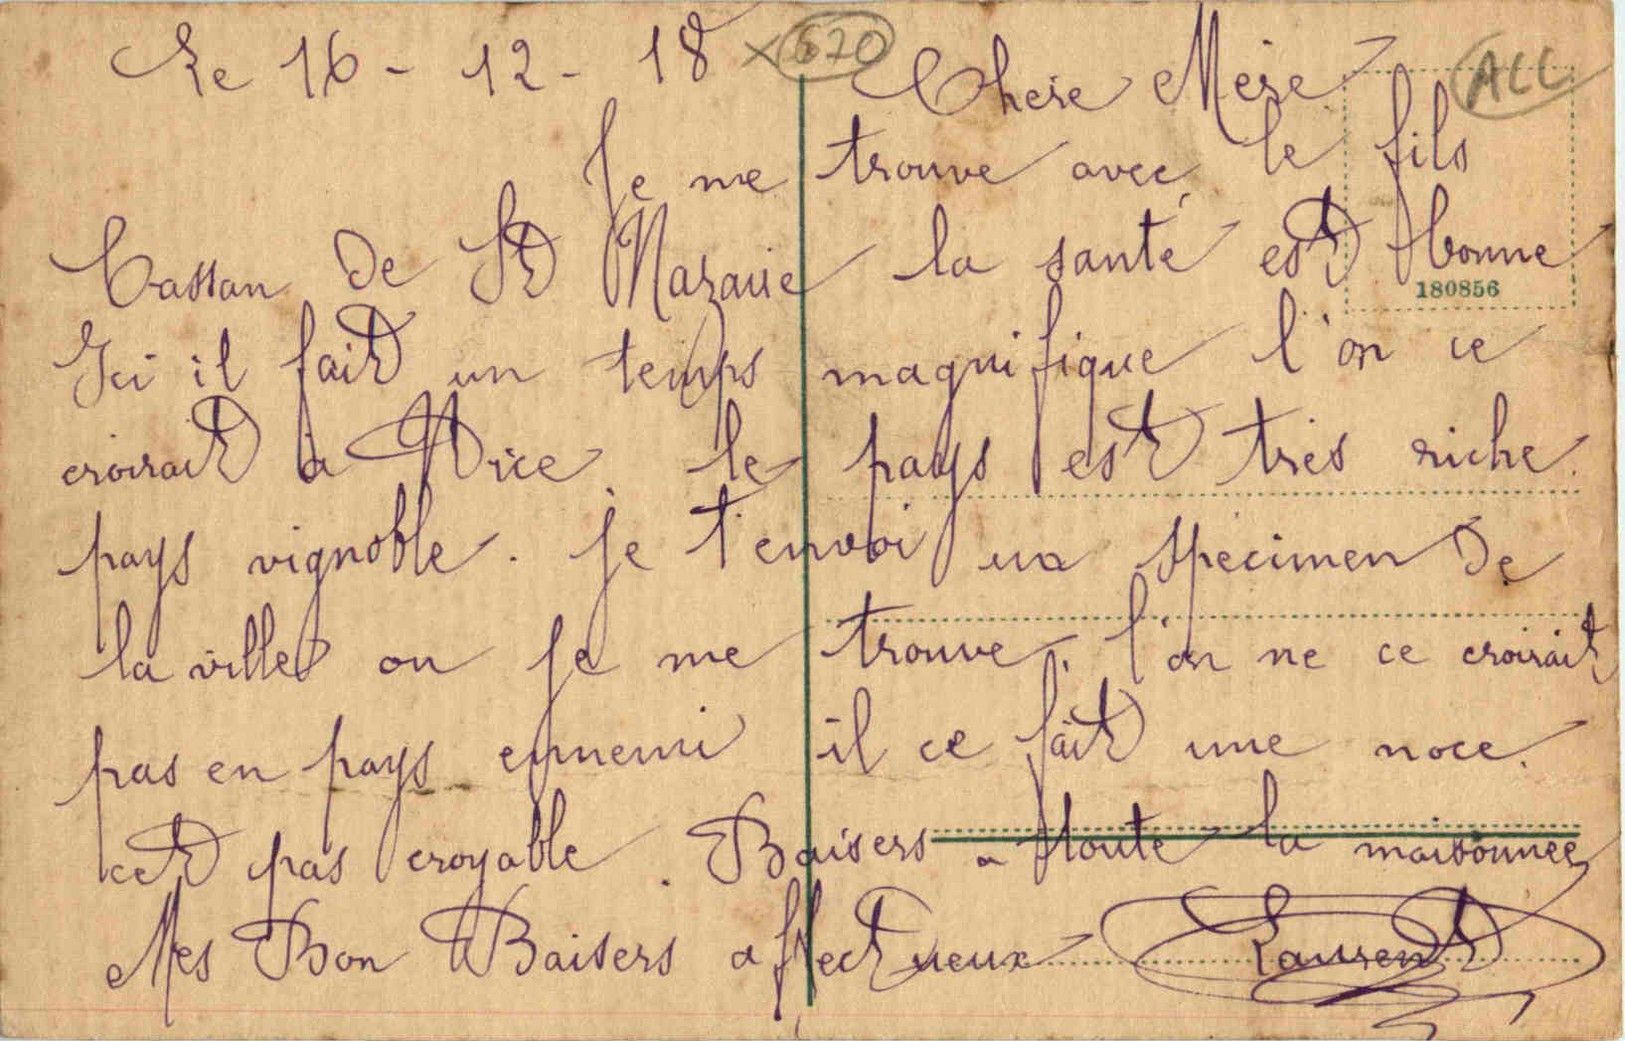 Le 16 - 12 - 18 × 670 Chere Mère ALL
Je me trouve avec le fils
Cassan de St Nazaire la santé est bonne
180856
Ici il fait un temps magnifique l'on ce
croirait à Nice. le pays est très riche.
pays vignoble. je t'envoi un spécimen de
la ville ou je me trouve. l'on ne ce croirait
pas en pays ennemi il ce fait une noce.
cet pas croyable. Baisers a toute la maisonnée
Mes Bon Baisers affectueux Laurent